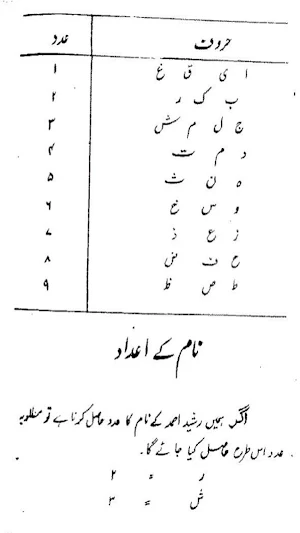 حروف عدد
ا ی ق غ ۱
ب ک ر ۲
ج ل م ش ۳
د م ت ۴
ہ ن ث ۵
و س خ ۶
ز ع ذ ۷
ح ف ض ۸
ط ص ظ ۹
نام کے اعداد
اگر ہمیں رشید احمد کے نام کا عدد حاصل کرنا ہے تو مطلوبہ
عدد اس طرح حاصل کیا جائے گا۔
ر = ۲
ش = ۳